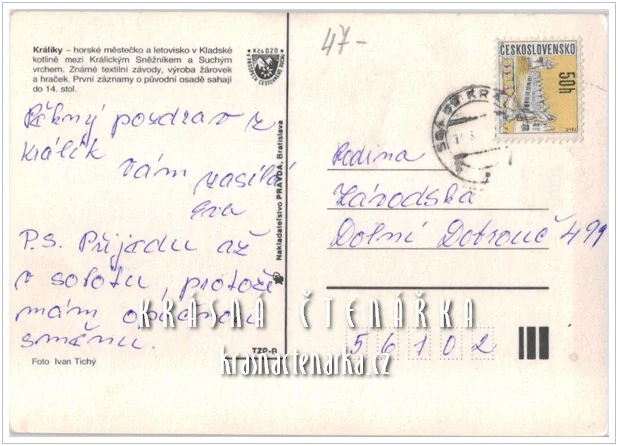 Králíky – horské městečko a letovisko v Kladské
kotlině mezi Králickým Sněžníkem a Suchým
vrchem. Známé textilní závody, výroba žárovek
a hraček. První záznamy o původní osadě sahají
do 14. stol.
Kčs 0,20
47-
ČESKOSLOVENSKO
50h
Pěkný pozdrav z
Králík
Vám zasílá
Eva
P.S. Přijedu až
v sobotu, protože
mám opičnou
směnu.
Foto Ivan Tichý
Nakladateľstvo PRAVDA, Bratislava
TZP-B
Rodina
Závodská
Dolní Dobrouč 499
56102
KRÁSNÁ ČTENÁŘKA
krasnactenarka.cz